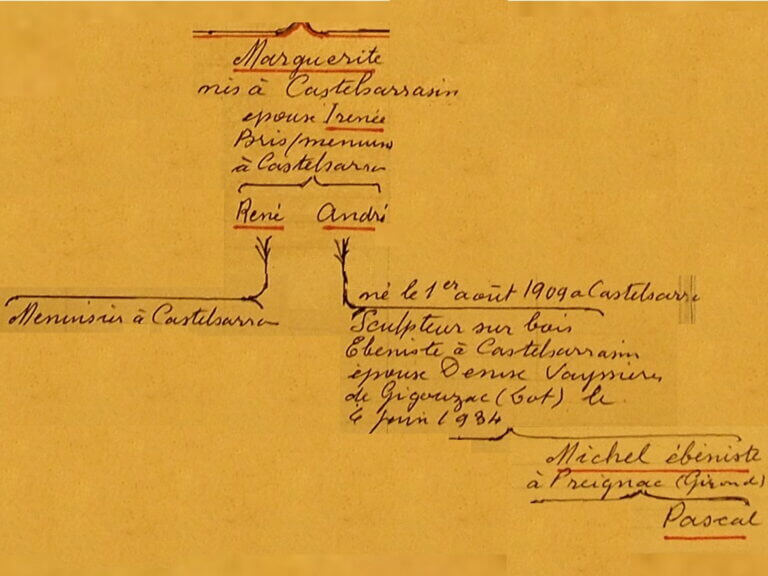 Marguerite
nés à Castelsarrasin
epouse Irenée
Bris/menuis
à Castelsarra
René André
né le 1er août 1909 a Castelsarra
Menuisier à Castelsarra
Sculpteur sur bois
Ebéniste à Castelsarrasin
épouse Denise Vayssiere
de Gigouzac (Lot) le
juin 1934
Michel ébéniste
à Preignac (Girond)
Pascal